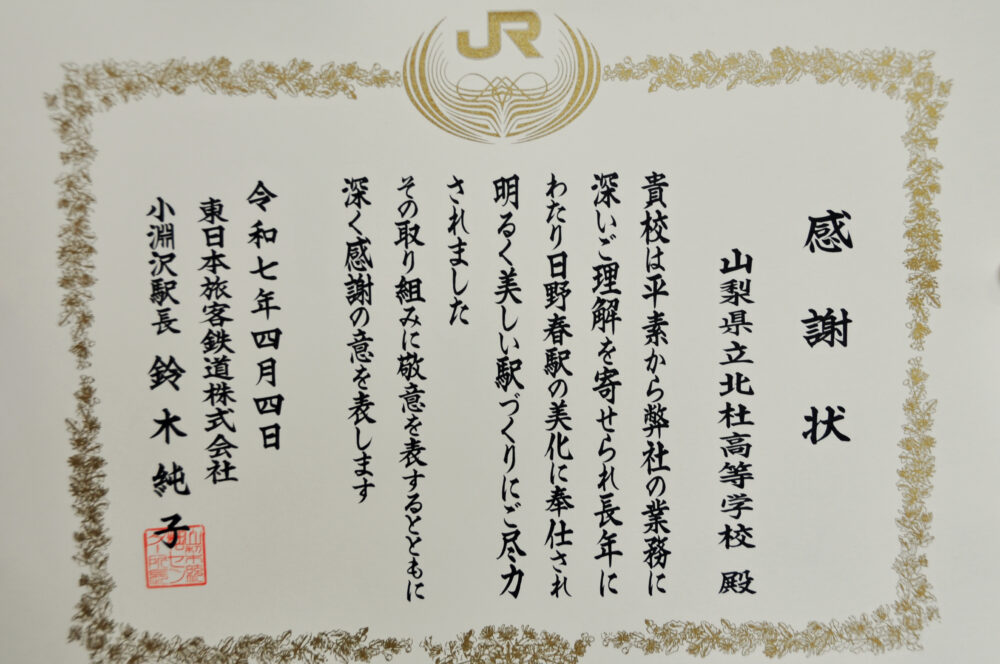 JR
感謝状
山梨県立北杜高等学校 殿
貴校は平素から弊社の業務に
深いご理解を寄せられ長年に
わたり日野春駅の美化に奉仕され
明るく美しい駅づくりにご尽力
されました
その取り組みに敬意を表するとともに
深く感謝の意を表します
令和七年四月四日
東日本旅客鉄道株式会社
小淵沢駅長 鈴木純子